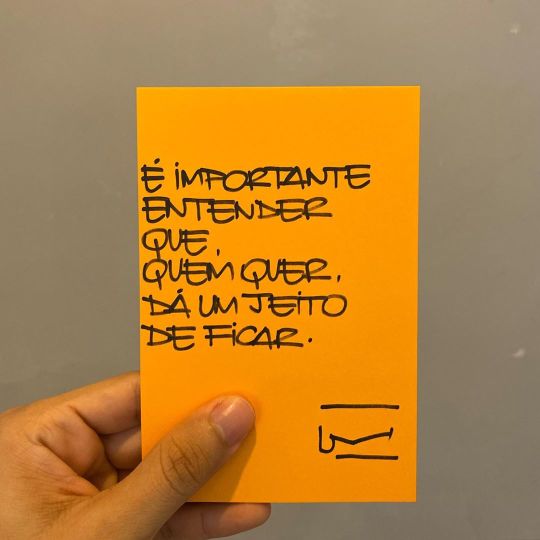 É IMPORTANTE
ENTENDER
QUE,
QUEM QUER,
DÁ UM JEITO
DE FICAR.